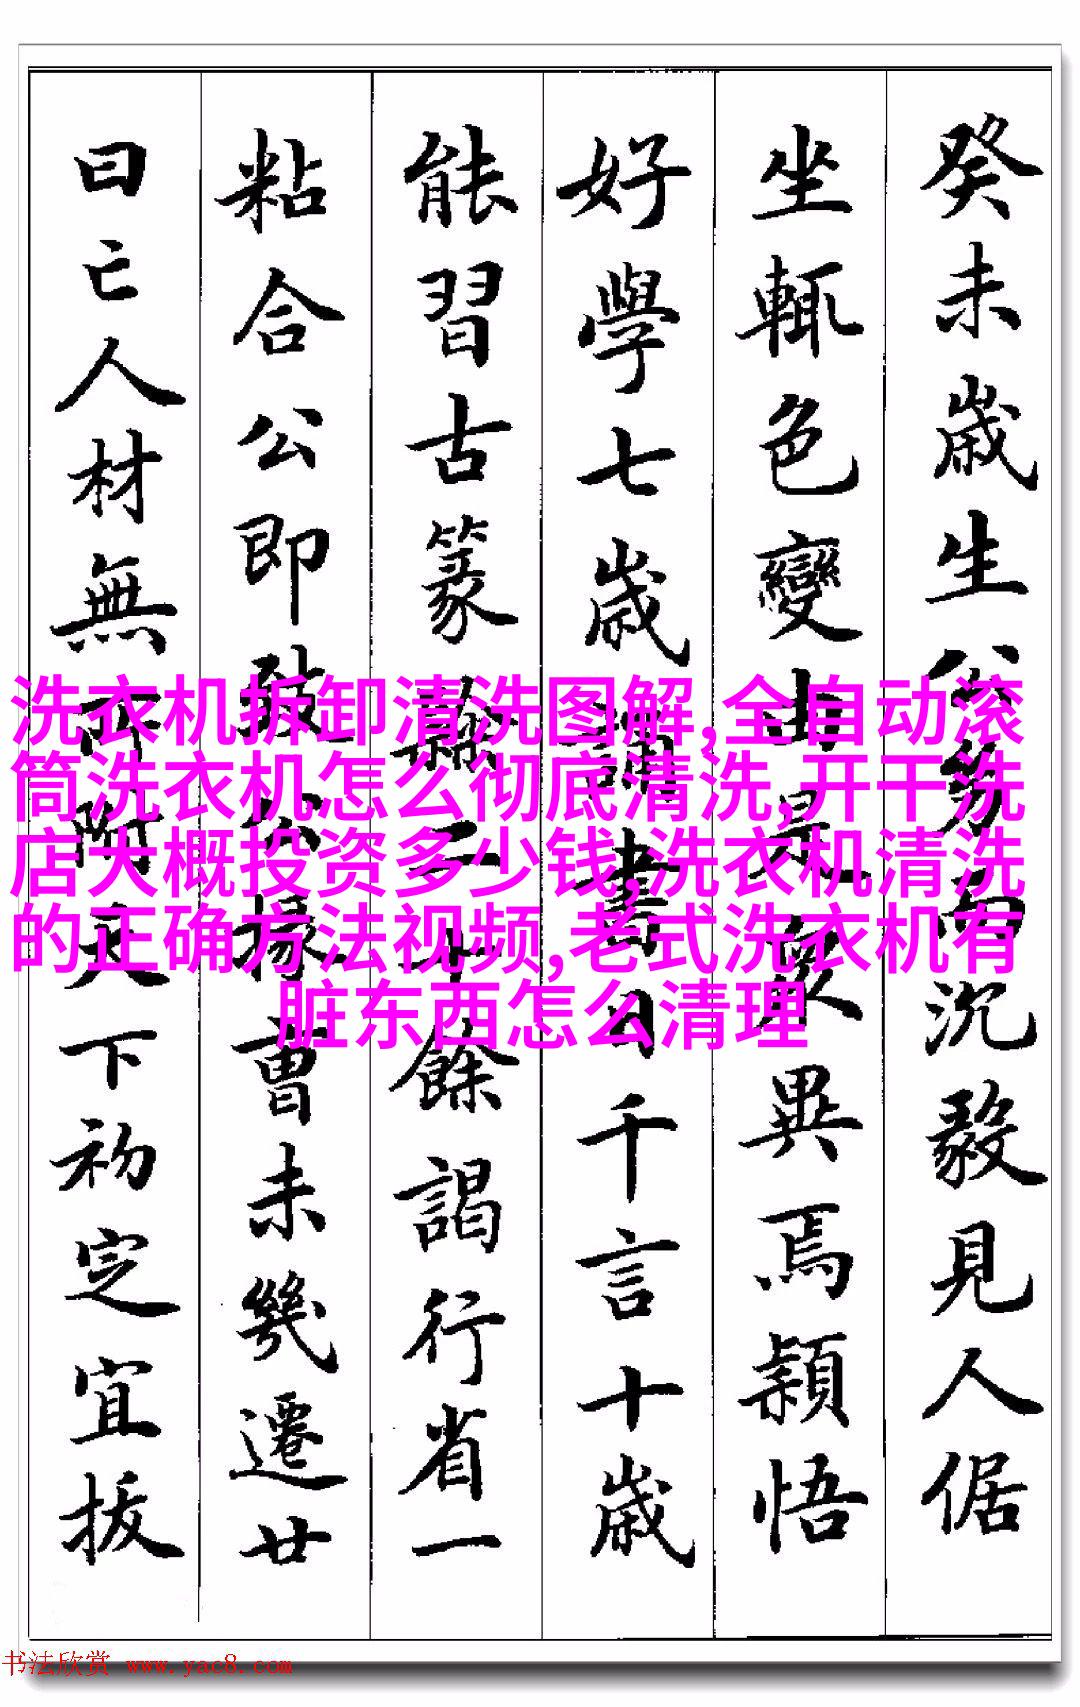 癸未歲生公沉毅見人倨
坐輒色變由是眾異焉穎悟
好學七歲誦書日千言十歲
能習古篆二十餘謁行省一
粘合公即掾曹未幾遷廿
曰亡人材無天下初定宜拔
洗衣机拆卸清洗图解,全自动滚
筒洗衣机怎么彻底清洗,开干洗
店大概投资多少钱,洗衣机清洗
的正确方法视频,老式洗衣机有
脏东西怎么清理
书法欣赏 www.yac8.com